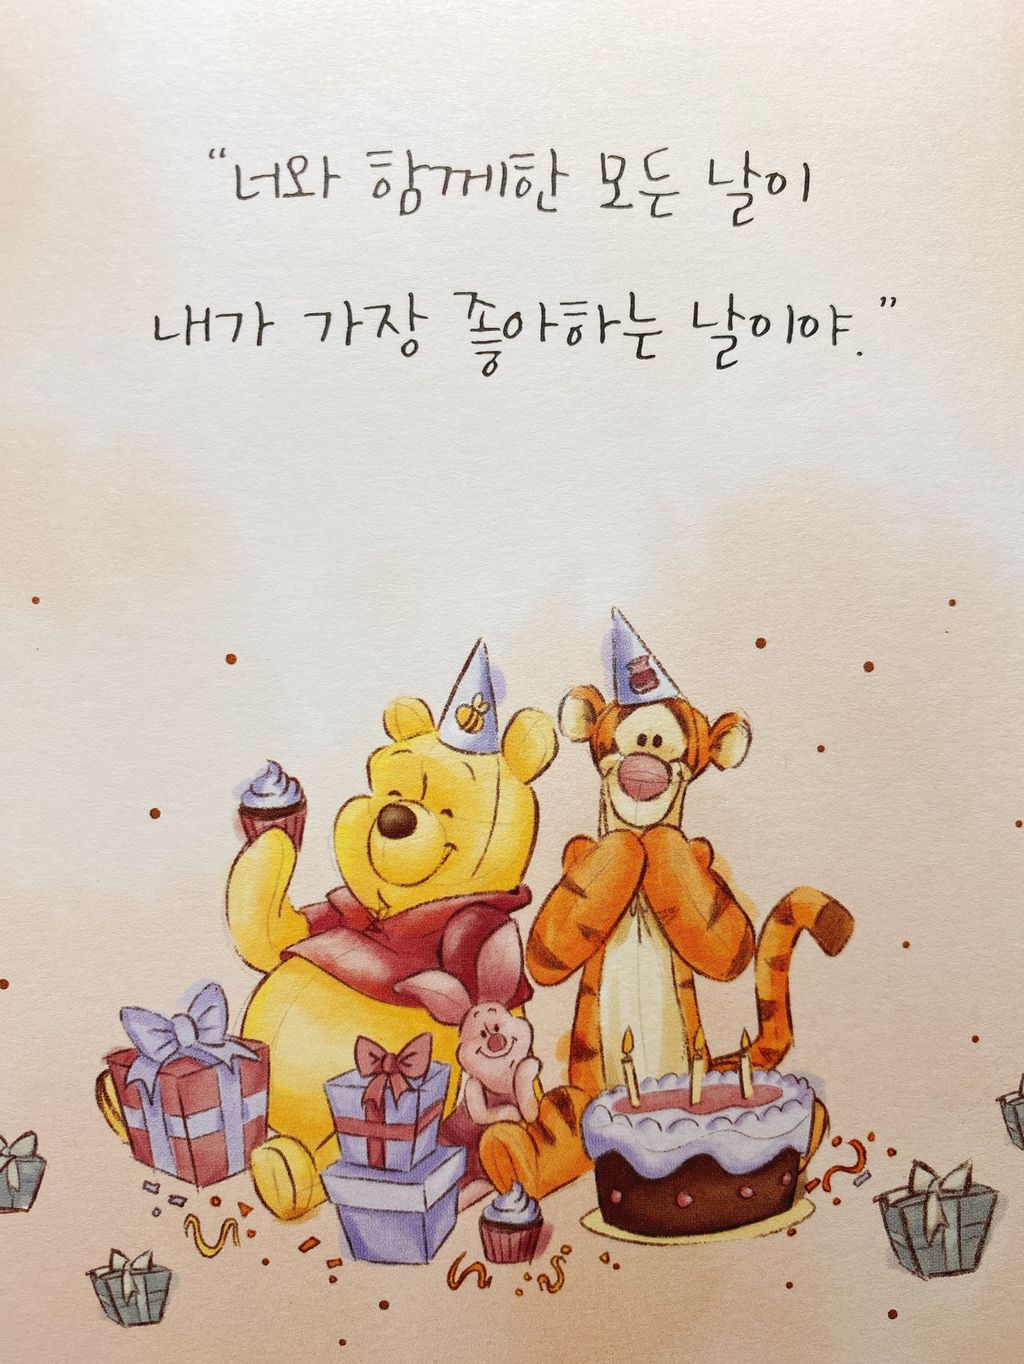 “너와 함께한 모든 날이
내가 가장 좋아하는 날이야.”